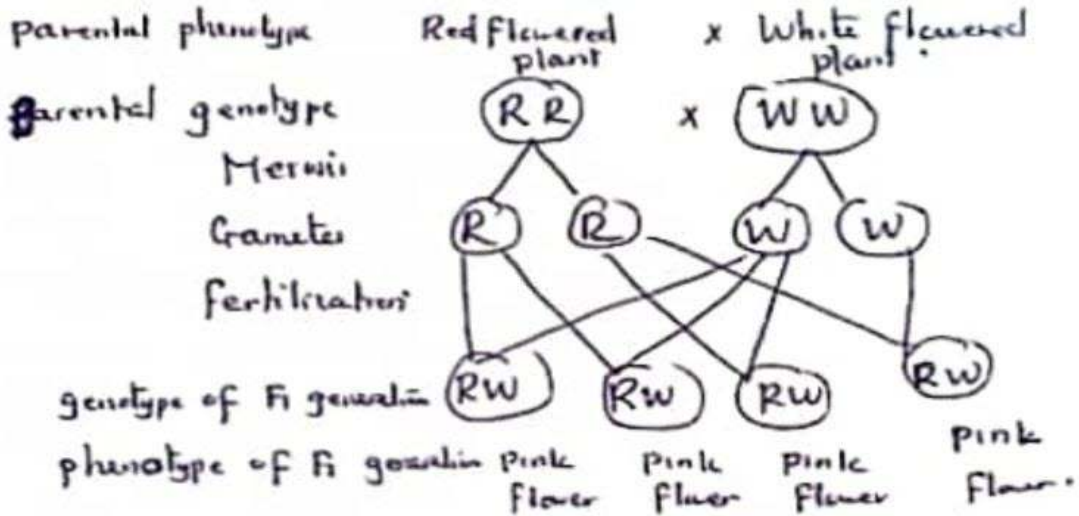 Parental phenotype Red flowered plant x White flowered plant.
Parental genotype RR x WW
Meiosis
Gametes R R W W
Fertilization
genotype of F1 generation RW RW RW RW
phenotype of F1 generation pink flower pink flower pink flower pink flower.